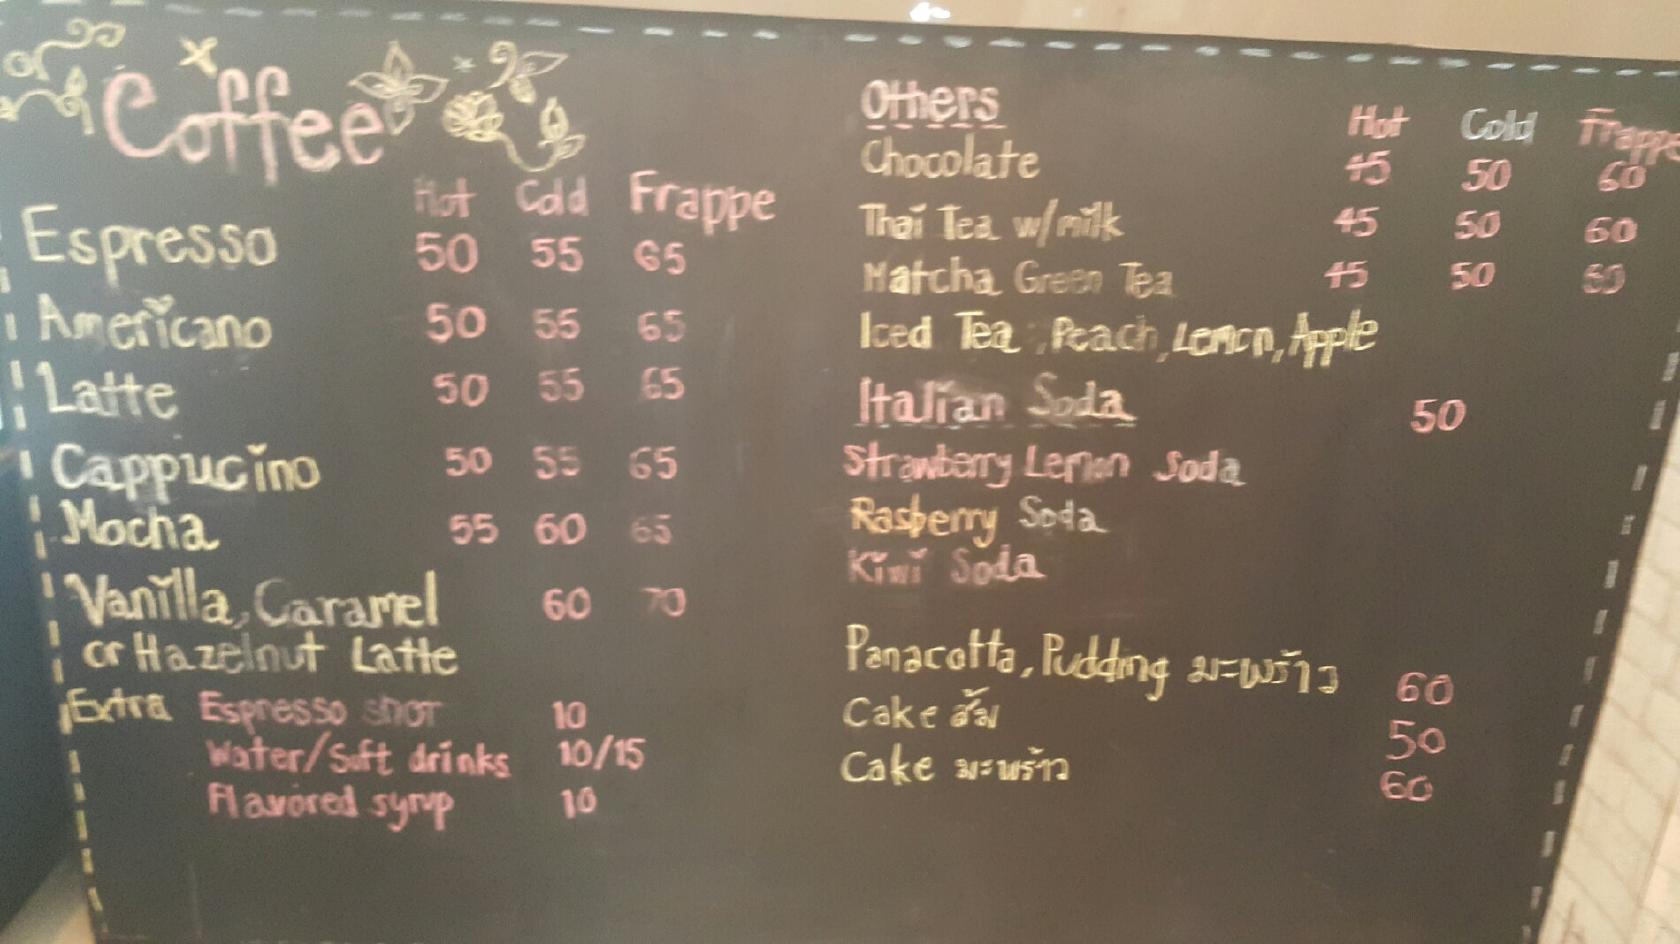 Coffee
Hot Cold Frappe
Espresso 50 55 65
Americano 50 55 65
Latte 50 55 65
Cappucino 50 55 65
Mocha 55 60 65
Vanilla, Caramel 60 70
or Hazelnut Latte
Extra Espresso shot 10
Water/Soft drinks 10/15
Flavored syrup 10
Others Hot Cold Frappe
Chocolate 45 50 60
Thai Tea w/milk 45 50 60
Matcha Green Tea 45 50 60
Iced Tea , Peach, Lemon, Apple
Italian Soda 50
Strawberry Lemon Soda
Rasberry Soda
Kiwi Soda
Panacotta, Pudding มะพร้าว 60
Cake ส้ม 50
Cake มะพร้าว 60